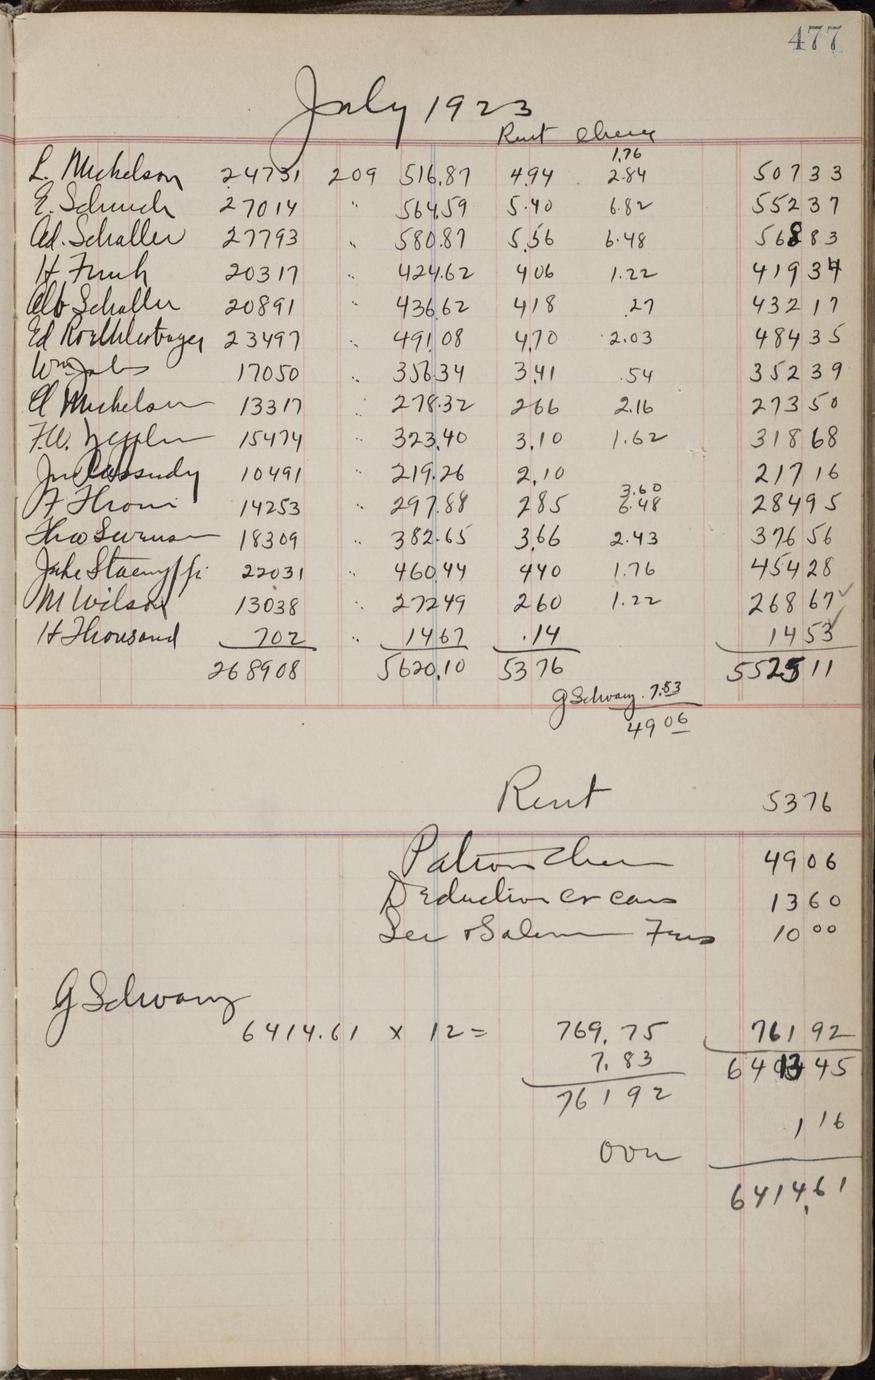 477
July 1923
Rent Cheese
1.76
L. Mickelson 24731 209 516.87 4.94 2.84 507 33
E. Schuch 27014 " 564.59 5.40 6.82 552 37
Ad. Schaller 27793 " 580.87 5.56 6.48 568 83
H. Funk 20317 " 424.62 4 06 1.22 419 34
Alb Schaller 20891 " 436.62 4 18 .27 432 17
Ed 23497 " 491.08 4.70 2.03 484 35
Wm 17050 " 356.34 3.41 .54 352 39
A Mickelson 13317 " 278.32 2 66 2.16 273 50
F.W. Zepplin 15474 " 323.40 3.10 1.62 318 68
Jno Cassudy 10491 " 219.26 2.10 217 16
3.60
F Throni 14253 " 297.88 2 85 6.48 284 95
Theo Swenson 18309 " 382.65 3.66 2.43 376 56
Jake 22031 " 460.44 4 40 1.76 454 28
M Wilson 13038 " 272 49 2 60 1.22 268 67
H Thousand 702 " 14 67 .14 14 53
268908 5620.10 53 76 5525 11
G Schwanz 7.83
49 06
Rent 53 76
Patron Cheese 49 06
Deduction cr cans 13 60
Sec & Salesman Fees 10 00
G Schwanz
6414.61 x 12 = 769.75 761 92
7.83 6413 45
761 92
1 16
over
6414.61